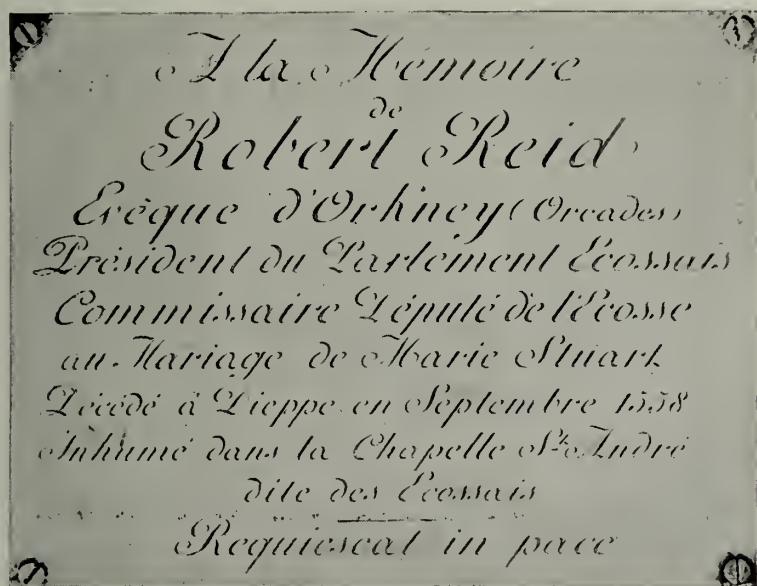 A la Mémoire
de
Robert Reid
Evêque d'Orkney (Orcades)
Président du Parlement Ecossais
Commissaire Député de l'Ecosse
au Mariage de Marie Stuart
Décédé à Dieppe en Septembre 1558
Inhumé dans la Chapelle St. André
dite des Ecossais
Requiescat in pace